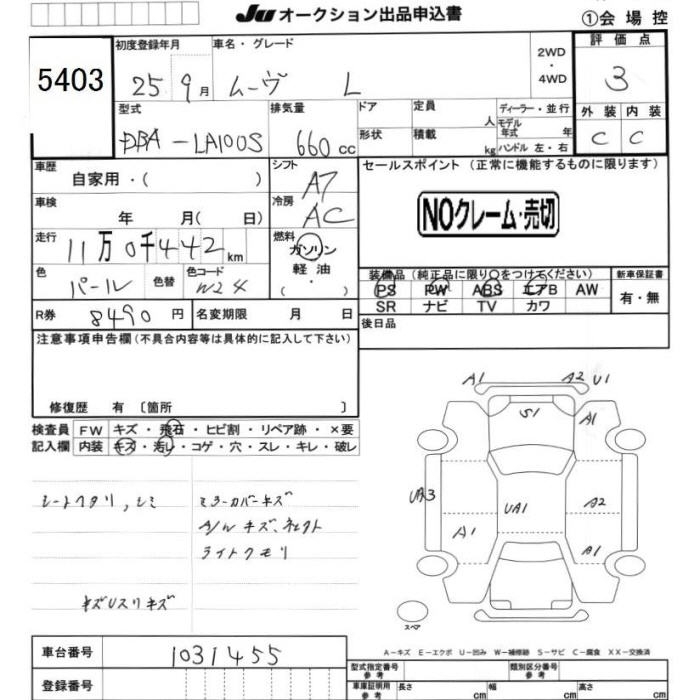 Ju オークション出品申込書
①会場控
5403
初度登録年月 車名・グレード 2WD・4WD 評価点
25 9月 ムーヴ L 3
型式 排気量 ドア 定員 人 ディーラー・並行 外装 内装
DBA-LA100S 660cc 形状 積載 kg モデル年式 年 ハンドル 左・右 C C
車歴 シフト セールスポイント（正常に機能するものに限ります）
自家用・( ) A7
車検 冷房 NOクレーム・売切
年 月( 日) AC
走行 燃料
11万0千442km ガソリン
色 色替 色コード 軽油 装備品（純正品に限り○をつけてください） 新車保証書
パール W24 ・( ) PS PW ABS エアB AW 有・無
SR ナビ TV カワ
R券 8490円 名変期限 月 日 後日品
注意事項申告欄（不具合内容等は具体的に記入して下さい）
修復歴 有 〔箇所 〕
検査員 FW キズ・飛石・ヒビ割・リペア跡・×要
記入欄 内装 キズ・汚レ・コゲ・穴・スレ・キレ・破レ
A1 A2 U1
S1 A1
シートヘタリ,シミ ミラーカバーキズ
UA3 UA1 A2
A/W キズ、
A1 A1
ライトクモリ
キズUスリキズ
スペア
A－キズ E－エクボ U－凹み W－補修跡 S－サビ C－腐食 XX－交換済
車台番号 1031455
型式指定番号 参考 類別区分番号 参考
登録番号 車庫証明用 参考 長さ cm 幅 cm 高さ cm